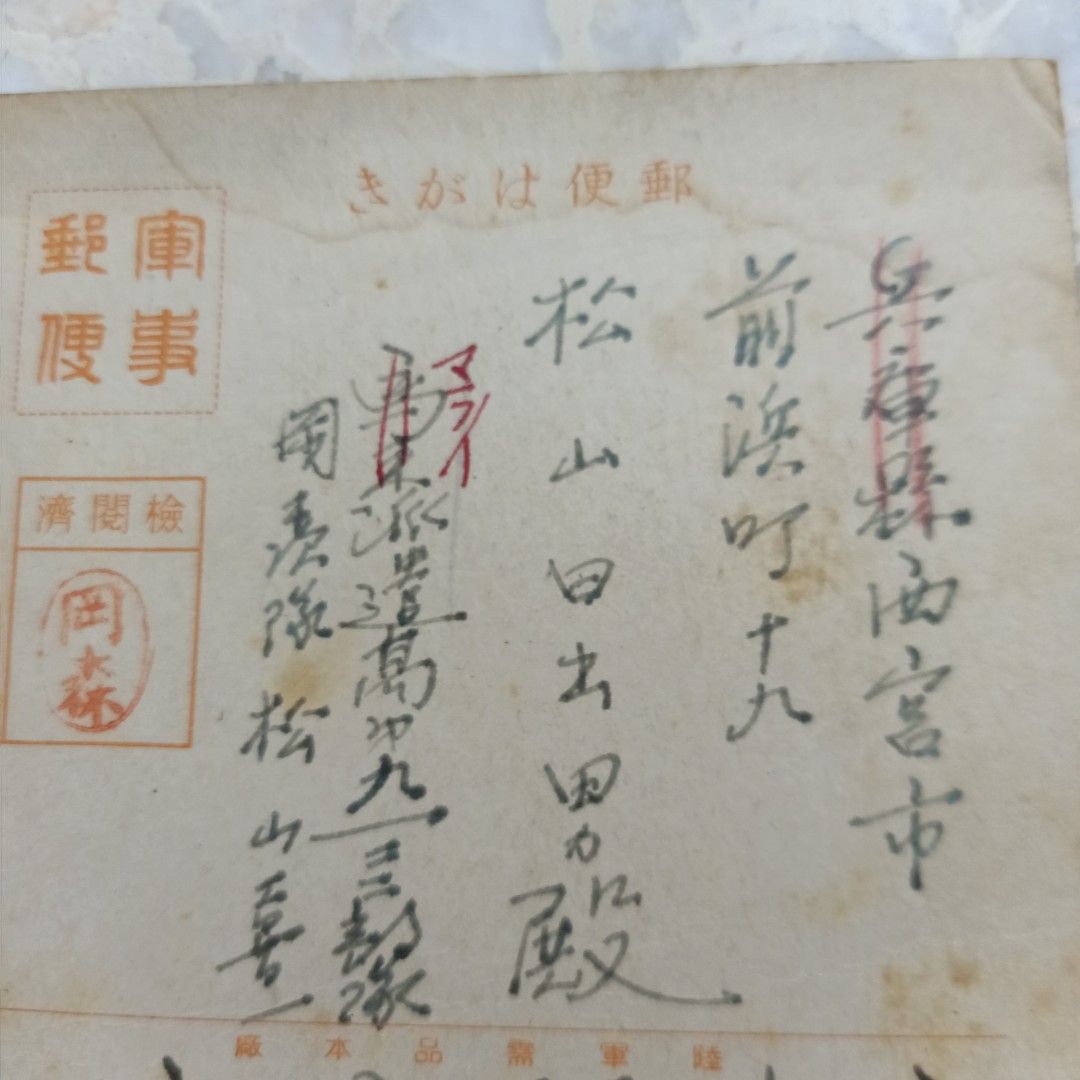 郵便はがき
兵庫縣西宮市
前浜町十九
松山日出男殿
マライ
馬来派遣萬九一三三部隊
岡隊 松山喜一
軍事
郵便
檢閲濟
岡森
陸軍需品本廠